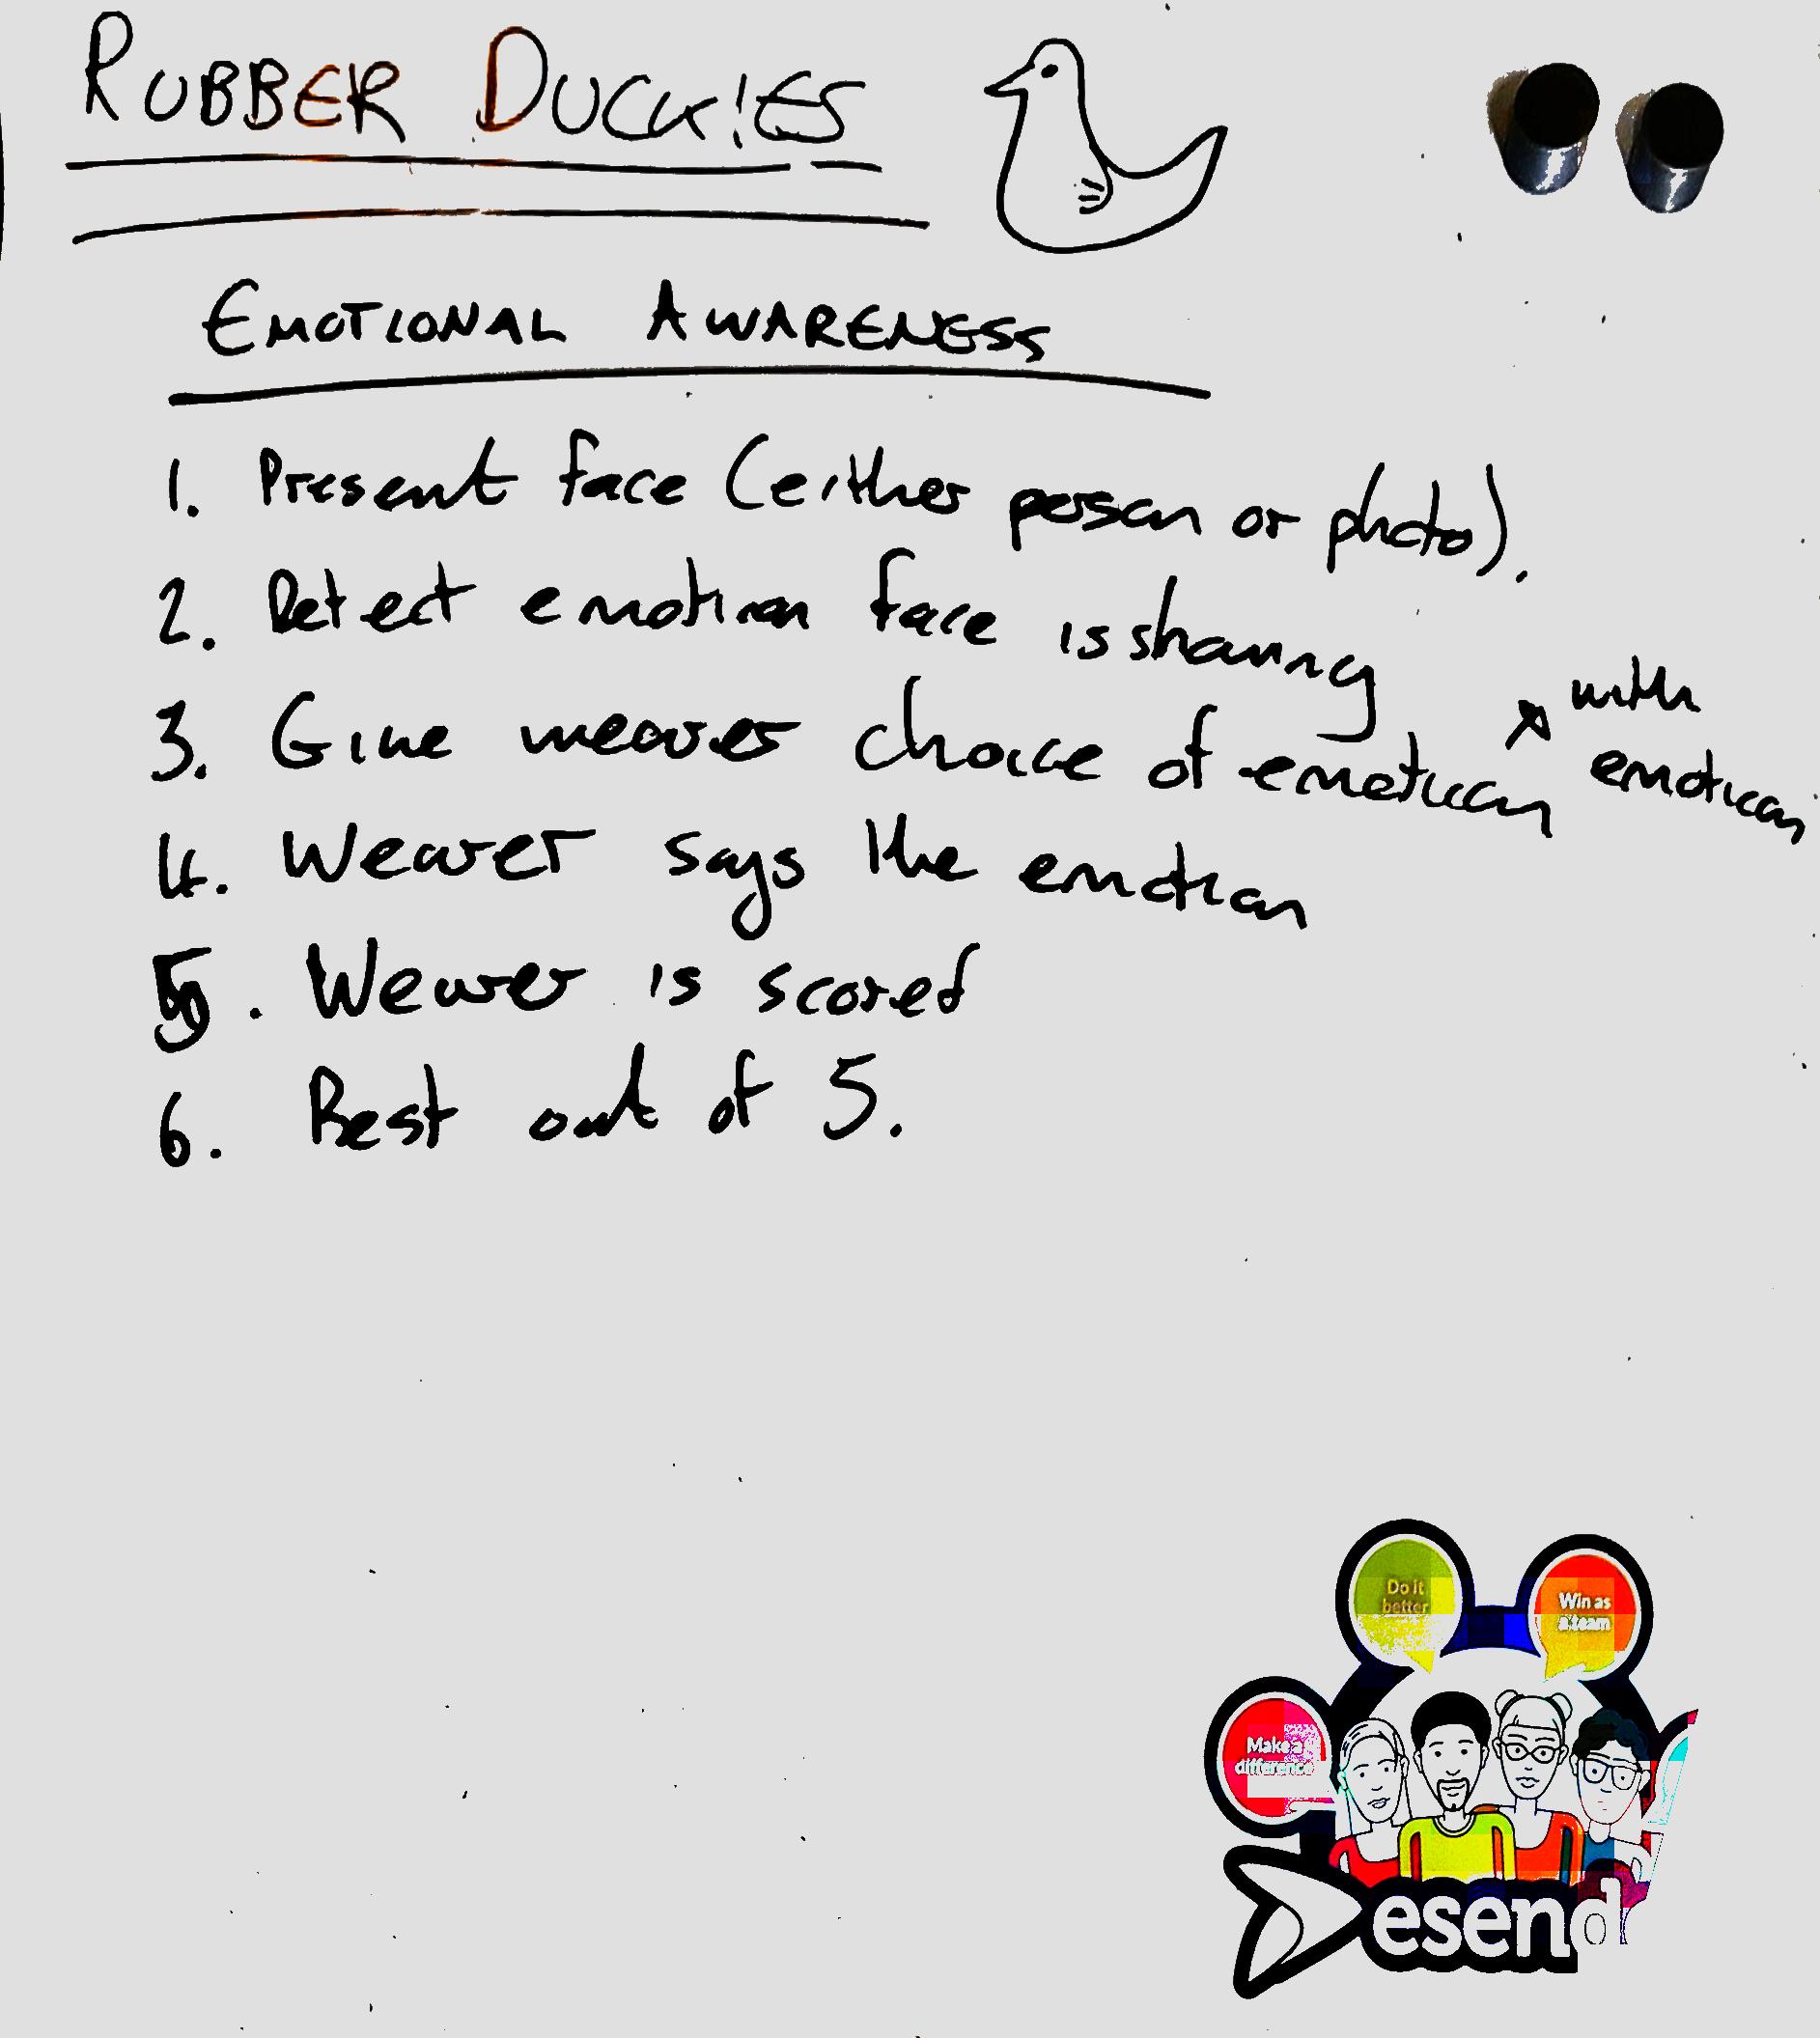 RUBBER DUCK!ES
EMOTIONAL AWARENESS
1. Present face (either person or photo).
2. Detect emotion face is sharing
3. Give wearer choice of emotion
with
emotican
4. Wearer says the emotion
5. Wearer is scored
6. Best out of 5.
Do it
better
Win as
a team
Make a
difference
esend